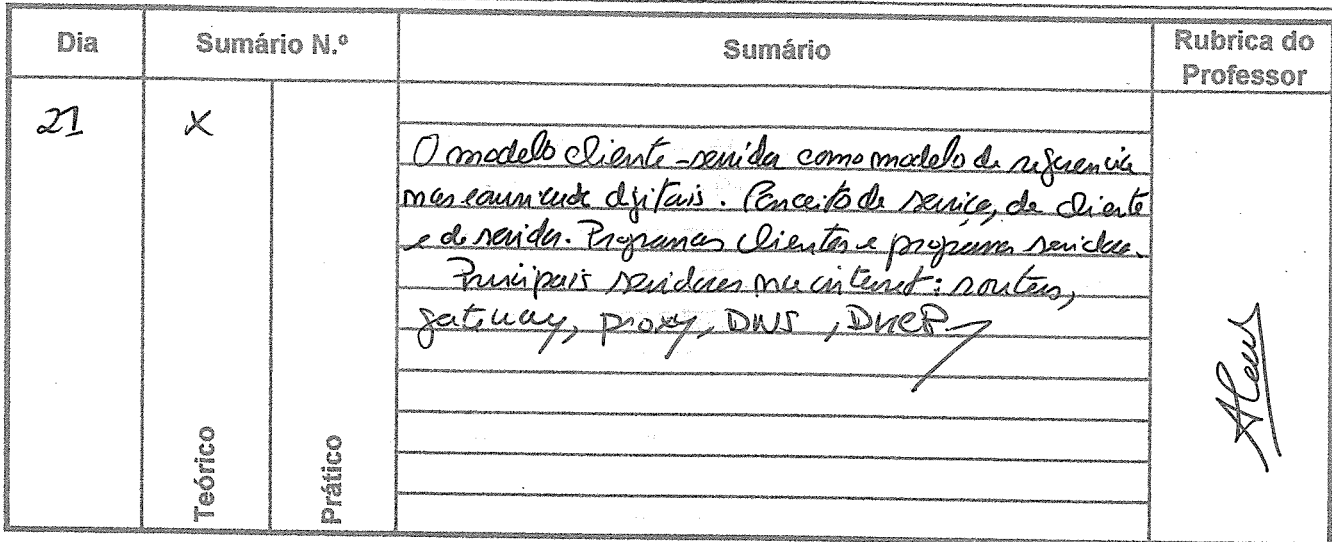 Dia
Sumário N.º
Sumário
Rubrica do
Professor
21
X
O modelo cliente-servidor como modelo de referencia
digitais. Conceito de serviço, de cliente
e de servidor. Programas clientes e programas servidores.
Principais servidores na internet: routers,
gateway, proxy, DNS, DHCP
Teórico
Prático